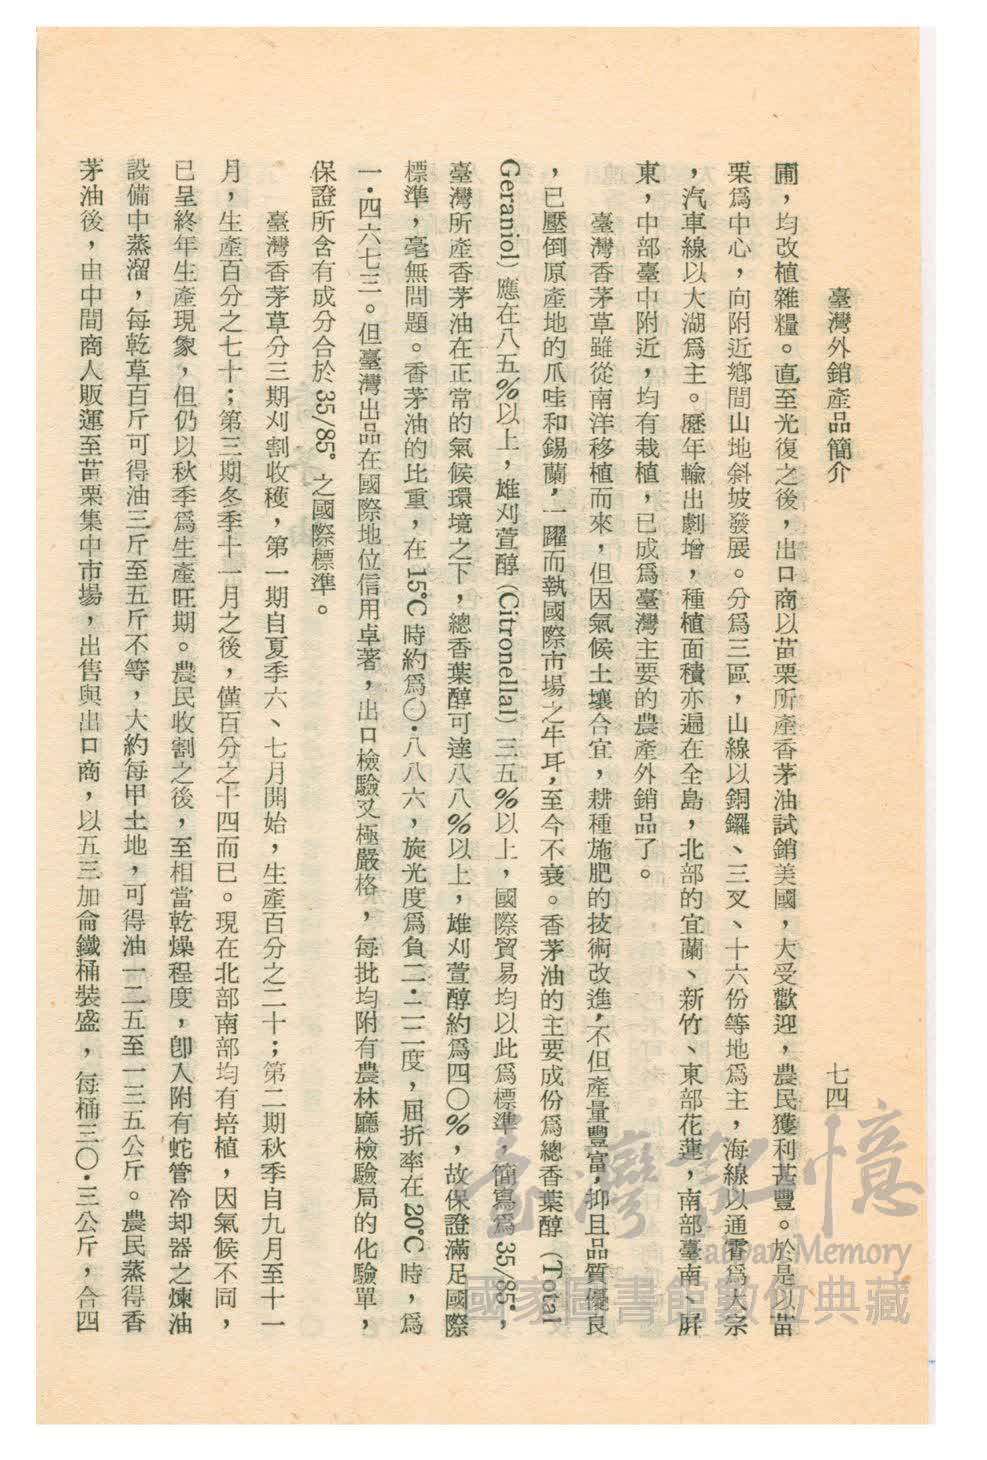 臺灣外銷產品簡介
七四
圃，均改植雜糧。直至光復之後，出口商以苗栗所產香茅油試銷美國，大受歡迎，農民獲利甚豐。於是以苗
栗爲中心，向附近鄉間山地斜坡發展。分爲三區，山線以銅鑼、三叉、十六份等地爲主，海線以通霄爲大宗
，汽車線以大湖爲主。歷年輸出劇增，種植面積亦遍在全島，北部的宜蘭、新竹、東部花蓮，南部臺南、屏
東，中部臺中附近，均有栽植，已成爲臺灣主要的農產外銷品了。
臺灣香茅草雖從南洋移植而來，但因氣候土壤合宜，耕種施肥的技術改進，不但產量豐富，抑且品質優良
，已壓倒原產地的爪哇和錫蘭，一躍而執國際市場之牛耳，至今不衰。香茅油的主要成份爲總香葉醇（Total
Geraniol）應在八五％以上，雄刈萱醇（Citronellal）三五％以上，國際貿易均以此爲標準，簡寫爲35/85°，
臺灣所產香茅油在正常的氣候環境之下，總香葉醇可達八八％以上，雄刈萱醇約爲四〇％，故保證滿足國際
標準，毫無問題。香茅油的比重，在15°C時約爲〇・八八六，旋光度爲負二・二二度，屈折率在20°C時，爲
一・四六七三。但臺灣出品在國際地位信用卓著，出口檢驗又極嚴格，每批均附有農林廳檢驗局的化驗單，
保證所含有成分合於35/85°之國際標準。
臺灣香茅草分三期刈割收穫，第一期自夏季六、七月開始，生產百分之二十；第二期秋季自九月至十一
月，生產百分之七十；第三期冬季十一月之後，僅百分之十四而已。現在北部南部均有培植，因氣候不同，
已呈終年生產現象，但仍以秋季爲生產旺期。農民收割之後，至相當乾燥程度，卽入附有蛇管冷却器之煉油
設備中蒸溜，每乾草百斤可得油三斤至五斤不等，大約每甲土地，可得油一二五至一三五公斤。農民蒸得香
茅油後，由中間商人販運至苗栗集中市場，出售與出口商，以五三加侖鐵桶裝盛，每桶三〇・三公斤，合四
臺灣記憶
Taiwan Memory
國家圖書館數位典藏